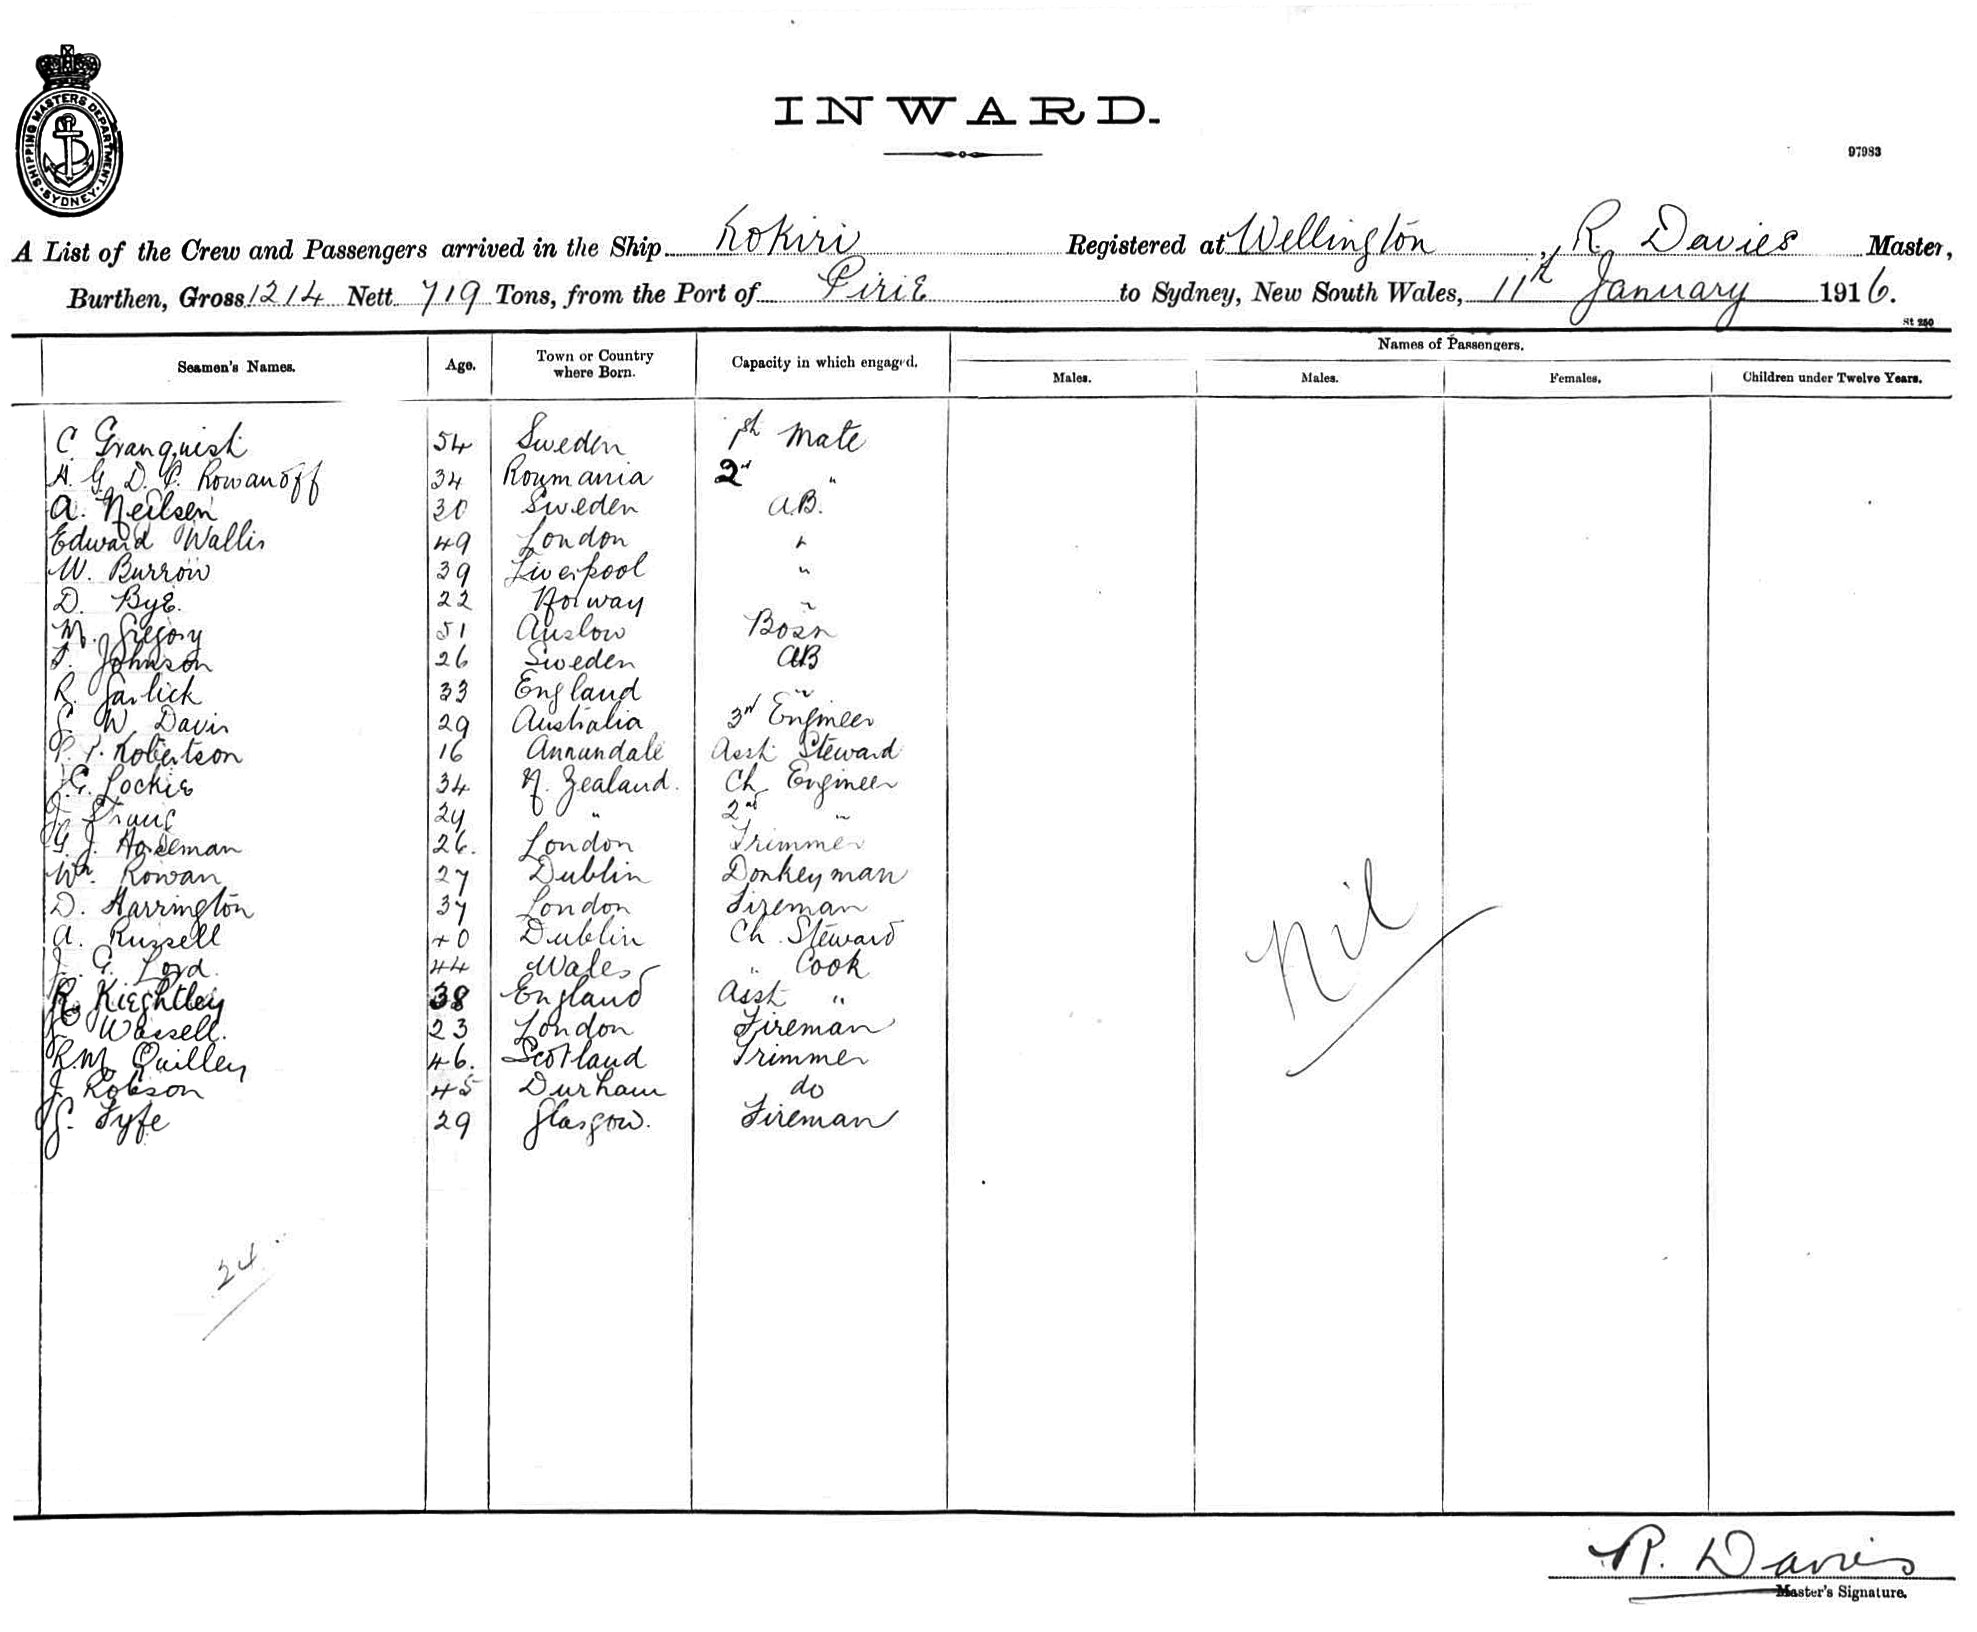 SHIPPING MASTERS DEPARTMENT SYDNEY
INWARD.
97983
A List of the Crew and Passengers arrived in the Ship Kokiri Registered at Wellington, R. Davies Master,
Burthen, Gross 1214 Nett 719 Tons, from the Port of Pirie to Sydney, New South Wales, 11th January 1916.
St 250
Names of Passengers.
Seamen's Names. Age. Town or Country where Born. Capacity in which engaged. Males. Males. Females. Children under Twelve Years.
C. Granquist 54 Sweden 1st Mate
H. G. D. P. Rowanoff 34 Roumania 2nd "
A. Neilsen 30 Sweden AB.
Edward Wallis 49 London "
W. Burrow 39 Liverpool "
D. Bye. 22 Norway "
M. Gregory 51 Onslow Bosn
Johnson 26 Sweden AB
R. Garlick 33 England "
W Davis 29 Australia 3rd Engineer
Robertson 16 Annandale Asst Steward
J.G. Lockie 34 N. Zealand. Ch Engineer
J. 27 " 2nd "
G. J. Horseman 26. London Trimmer
Wm. Rowan 27 Dublin Donkeyman
D. Harrington 37 London Fireman
A. Russell 40 Dublin Ch. Steward
J. G. Lord. 44 Wales " Cook
R. Kieghtley 38 England Asst "
J. Wassell. 23 London Fireman
R. Mc Quilley 46. Scotland Trimmer
J. Robson 45 Durham do
G. Fyfe 29 Glasgow. Fireman
Nil
24
R. Davies
Master's Signature.